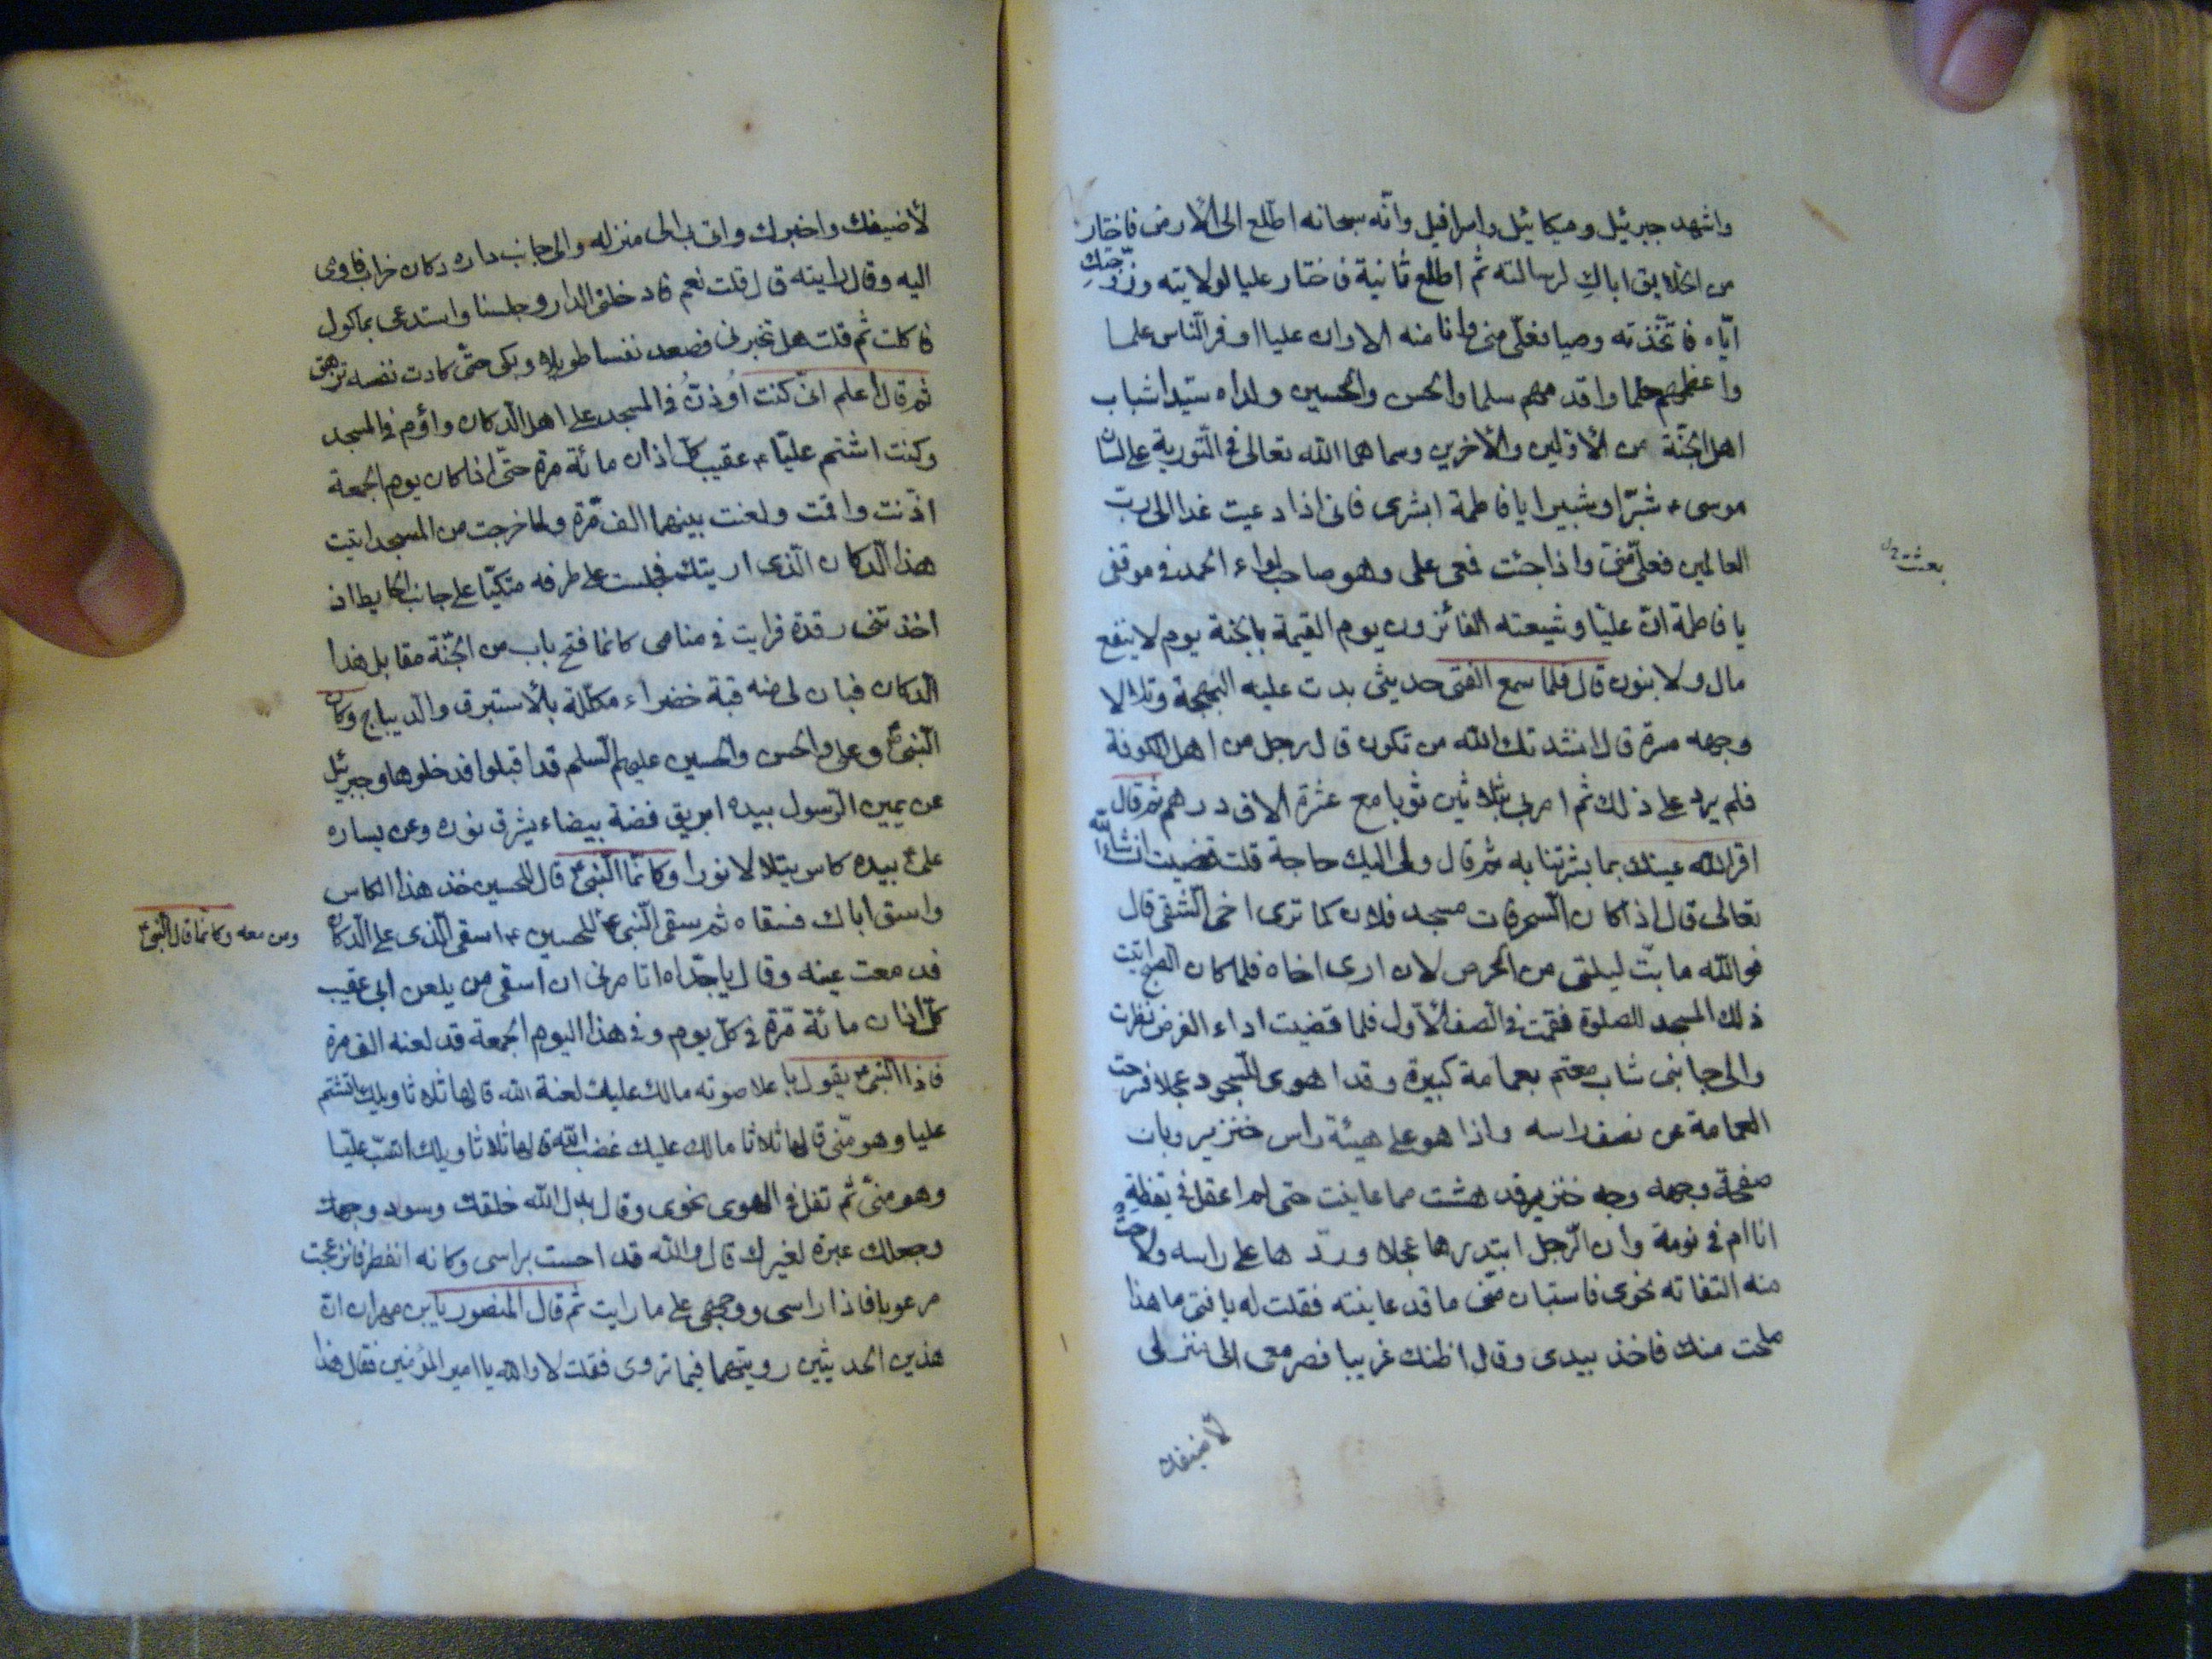 واشهد جبرئيل وميكائيل واسرافيل وانّه سبحانه اطّلع الى الارض فاختار
من الخلايق اباكِ لرسالته ثم اطلع ثانية فاختار عليا لولايته وزوّجكِ
ايّاه فاتّخذته وصيا فعلّى منى وانا منه الا وان عليا اوفر النّاس علما
واعظمهم حلما واقدمهم سلما والحسن والحسين ولداه سيّدا شباب
اهل الجنّة من الأوّلين والأخرين وسماهما الله تعالى فى التّورية على لسان
موسى ع شبّرا وشبيرا يا فاطمة ابشرى فانى اذا دعيت غدا الى ربّ
العالمين فعلىّ منىّ واذا جئت فمعى على وهو صاحب لواء الحمد فى موقفى
بعثت
يا فاطمة انّ عليّا وشيعته الفائزون يوم القيمة بالجنة يوم لا ينفع
مال ولا بنون قال فلما سمع الفتى حديثى بدت عليه البهجة وتلالا
وجهه مسرة قال انشدتك الله من تكون قال رجل من اهل الكوفة
فلم يرد على ذلك ثم امر لى بثلاثين ثوبا مع عشرة الاف درهم ثم قال
اقر الله عينك بما بشرتنا به ثم قال ولى اليك حاجة قلت قضيت انشاء الله
تعالى قال اذا كان السحر فات مسجد فلان كما ترى اخى الشّقى قال
فوالله ما بتّ ليلتى من الحرص لان ارى اخاه فلما كان الصبح اتيت
ذلك المسجد للصلوة فقمت فى الصف الأوّل فلما قضيت اداء الفرض نظرت
والى جانبى شاب معتم بعمامة كبيرة وقد اهوى للسّجود عجلا فسرحت
العمامة عن نصف راسه واذا هو على هيئة راس خنزير وبان
صفحة وجهه وجه خنزير فدهشت مما عاينت حتى لم اعقل فى يقظةٍ
انا ام فى نومة وان الرّجل ابتدرها عجلا وردّها على راسه ولاحت
منه التفاته نحوى فاستبان منّى ما قد عاينته فقلت له يا فتى ما هذا
ملحت منك فاخذ بيدى وقال اظنك غريبا فصر معى الى منزلى
لأضيفك
لأضيفك واخبرك واتى بى الى منزله والى جانب داره دكان خراب فاومى
اليه وقال رايته قال قلت نعم فادخلنى الدار وجلسنا واستدعى بماكول
فاكلت ثم قلت هل تخبرنى فصعد نفسا طويلا وبكى حتّى كادت نفسه تزهق
ثم قال اعلم انىّ كنت اُوذنُ فى المسجد على اهل الدّكان واؤم فى المسجد
وكنت اشتم عليّا ع عقيب كلّ اذان مائة مرة حتّى اذا كان يوم الجمعة
اذّنت واقمت ولعنت بينهما الف مّرة ولما خرجت من المسجد اتيت
هذا الدّكان الّذى اريتك فجلست على طرفه متكيّا على جانب الحايط اذ
اخذتنى رقدة فرايت فى منامى كانما فتح باب من الجنّة مقابل هذا
الدّكان فبان لى منه قبة خضراء مكللة بالأستبرق والديباج وكان
النّبى وعلى والحسن والحسين عليهم السّلم قد اقبلوا فدخلوها وجبرئيل
عن يمين الرّسول بيده ابريق فضة بيضاء يشرق نوره وعن يساره
على بيده كاس يتلالا نورا وكانّما النّبى قال للحسين خذ هذا الكاس
واسق اباك فسقاه ثم سقى النّبى للحسين ع اسقى الّذى على الدّكان
ومن معه وكانما قال النبى
فدمعت عينه وقال يا جدّاه اتامرنى ان اسقى من يلعن ابى عقيب
كلّ اذان مائة مّرة فى كلّ يوم وفى هذا اليوم الجمعة قد لعنه الف مرة
فاذا النّبى يقول باعلا صوته مالك عليك لعنة الله قالها ثلاثا ويلك اتشتم
عليا وهو منّى قالها ثلاثا مالك عليك غضب الله قالها ثلاثا ويلك اتسّب عليّا
وهو منىّ ثم تفل فى الهوى نحوى وقال بدل الله خلقك وسود وجهك
وجعلك عبرة لغيرك قال والله قد احست براسى وكانه انفطر فانزعجت
مرعوبا فاذا راسى ووجهى على ما رايت ثم قال المنصور يابن مهران ان
هذين الحديثين رويتهما فيما تروى فقلت لا والله يا امير المؤمنين فقال هذا